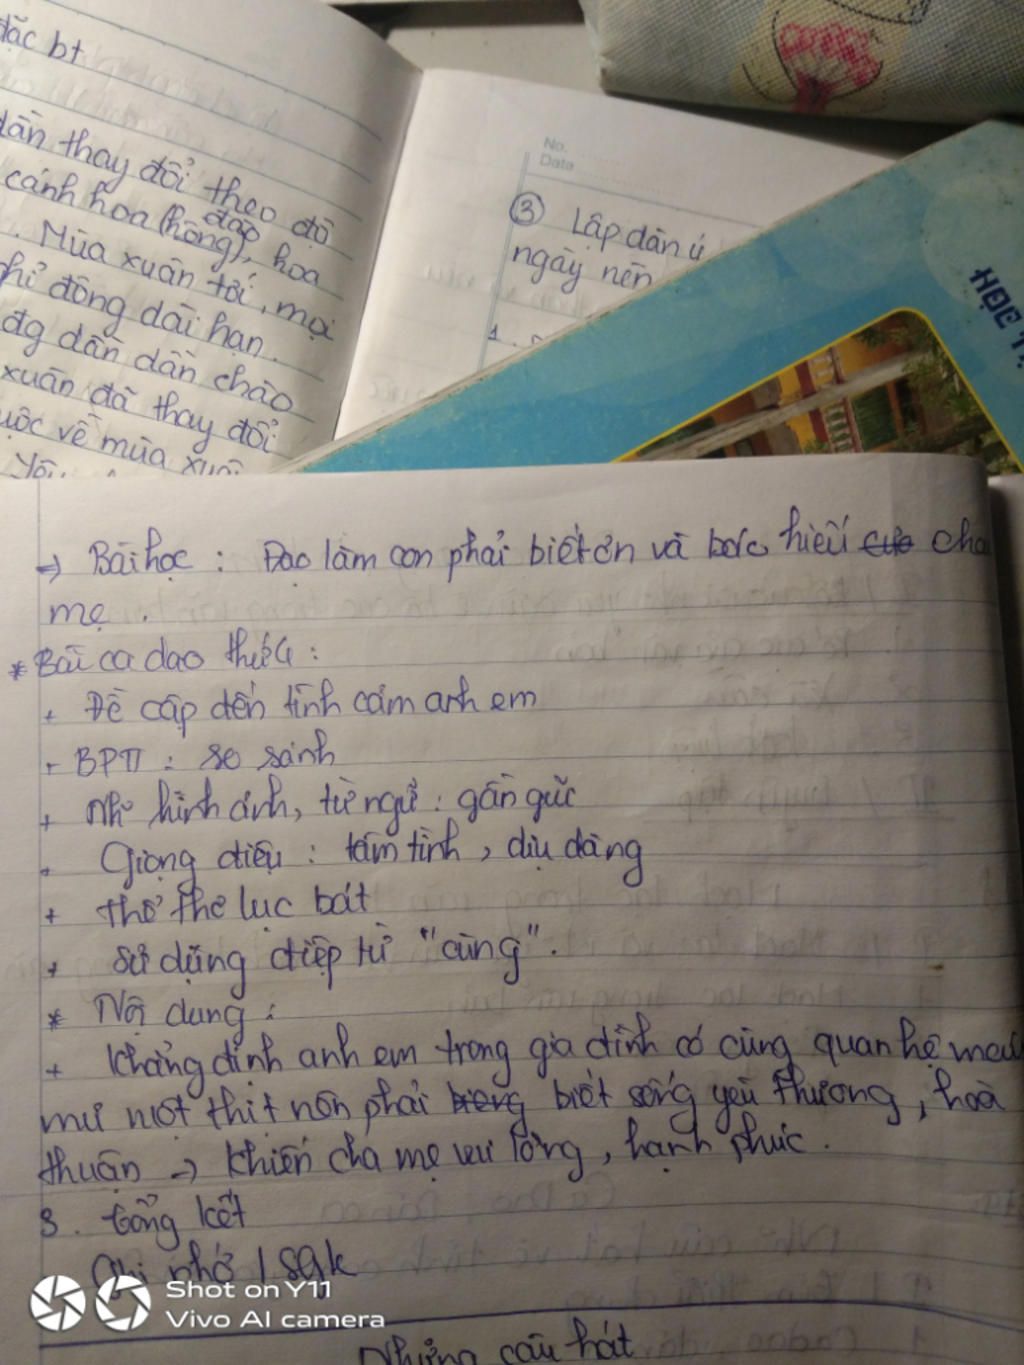 đặc bt
dần thay đổi theo độ
đào
cánh hoa (hồng), hoa
. Mùa xuân tới, mọi
đông dài hạn.
đg dần dần chào
xuân đã thay đổi
về mùa xuân
No.
Date
③ Lập dàn ý
ngày nên
1.
HỌC
→ Bài học : Đạo làm con phải biết ơn và báo hiếu cha
mẹ .
* Bài ca dao thứ 4 :
+ Đề cập đến tình cảm anh em
+ BPTT : so sánh
+ Nh~ hình ảnh, từ ngữ : gần gũi
+ Giọng điệu : tâm tình, dịu dàng
+ thơ thể lục bát
+ sử dụng điệp từ "cùng".
* Nội dung :
+ Khẳng định anh em trong gia đình có cùng quan hệ máu
mủ ruột thịt nên phải biết sống yêu thương, hoà
thuận → khiến cha mẹ vui lòng, hạnh phúc.
3. tổng kết
Ghi nhớ / sgk
Những câu hát
Shot on Y11
Vivo AI camera